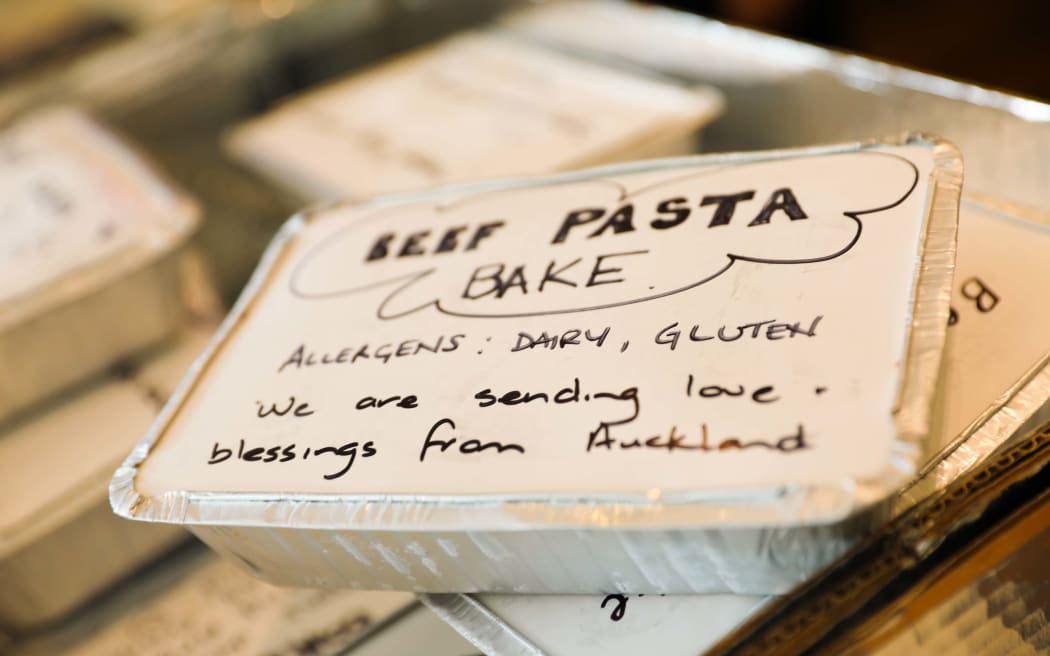 BEEF PASTA
BAKE.
ALLERGENS: DAIRY, GLUTEN
We are sending love .
blessings from Auckland